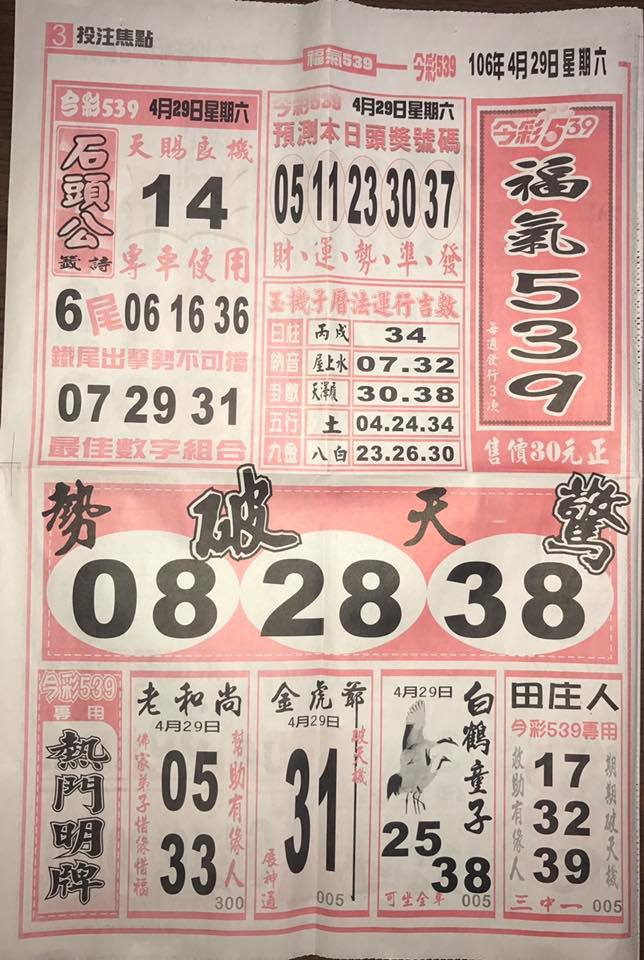 3 投注焦點
福氣539
今彩539
106年4月29日星期六
今彩539 4月29日星期六
石頭公
籤詩
天賜良機
14
專車使用
6尾 06 16 36
鐵尾出擊勢不可擋
07 29 31
最佳數字組合
今彩539 4月29日星期六
預測本日頭獎號碼
05 11 23 30 37
財、運、勢、準、發
玉機子曆法運行吉數
日柱 丙戌 34
納音 屋上水 07.32
卦數 天澤履 30.38
五行 土 04.24.34
九金 八白 23.26.30
今彩539
福氣539
每週發行3次
售價30元正
勢破天驚
08 28 38
今彩539
專用
熱門明牌
老和尚
4月29日
佛家弟子惜緣惜福
05
33
幫助有緣人
300
金虎爺
4月29日
破天機
31
展神通
005
4月29日
白鶴童子
25
38
可坐全車
005
田庄人
今彩539專用
救助有緣人
17
32
39
期期破天機
三中一
005